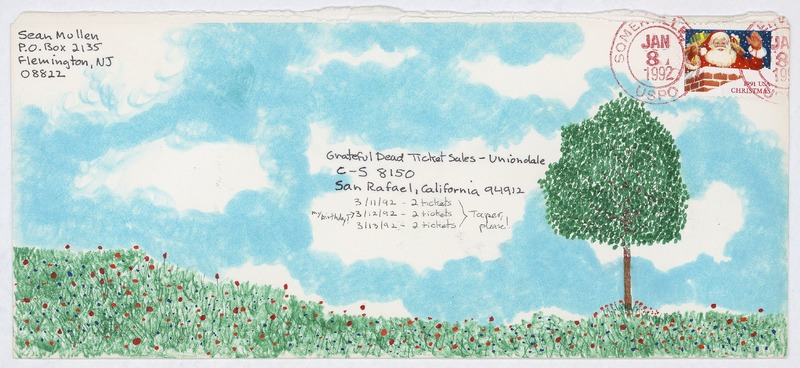 Sean Mullen
P.O. Box 2135
Flemington, NJ
08822
SOMERVILLE
JAN
8
1992
USPO
JAN
8
1991 USA
CHRISTMAS
Grateful Dead Ticket Sales - Uniondale
C-S 8150
San Rafael, California 94912
3/11/92 - 2 tickets
my birthday! → 3/12/92 - 2 tickets } Taper,
3/13/92 - 2 tickets please!